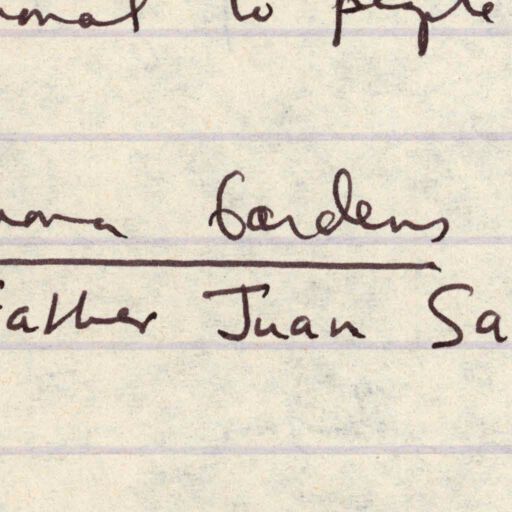 to people
Gardens
Father Juan Sa